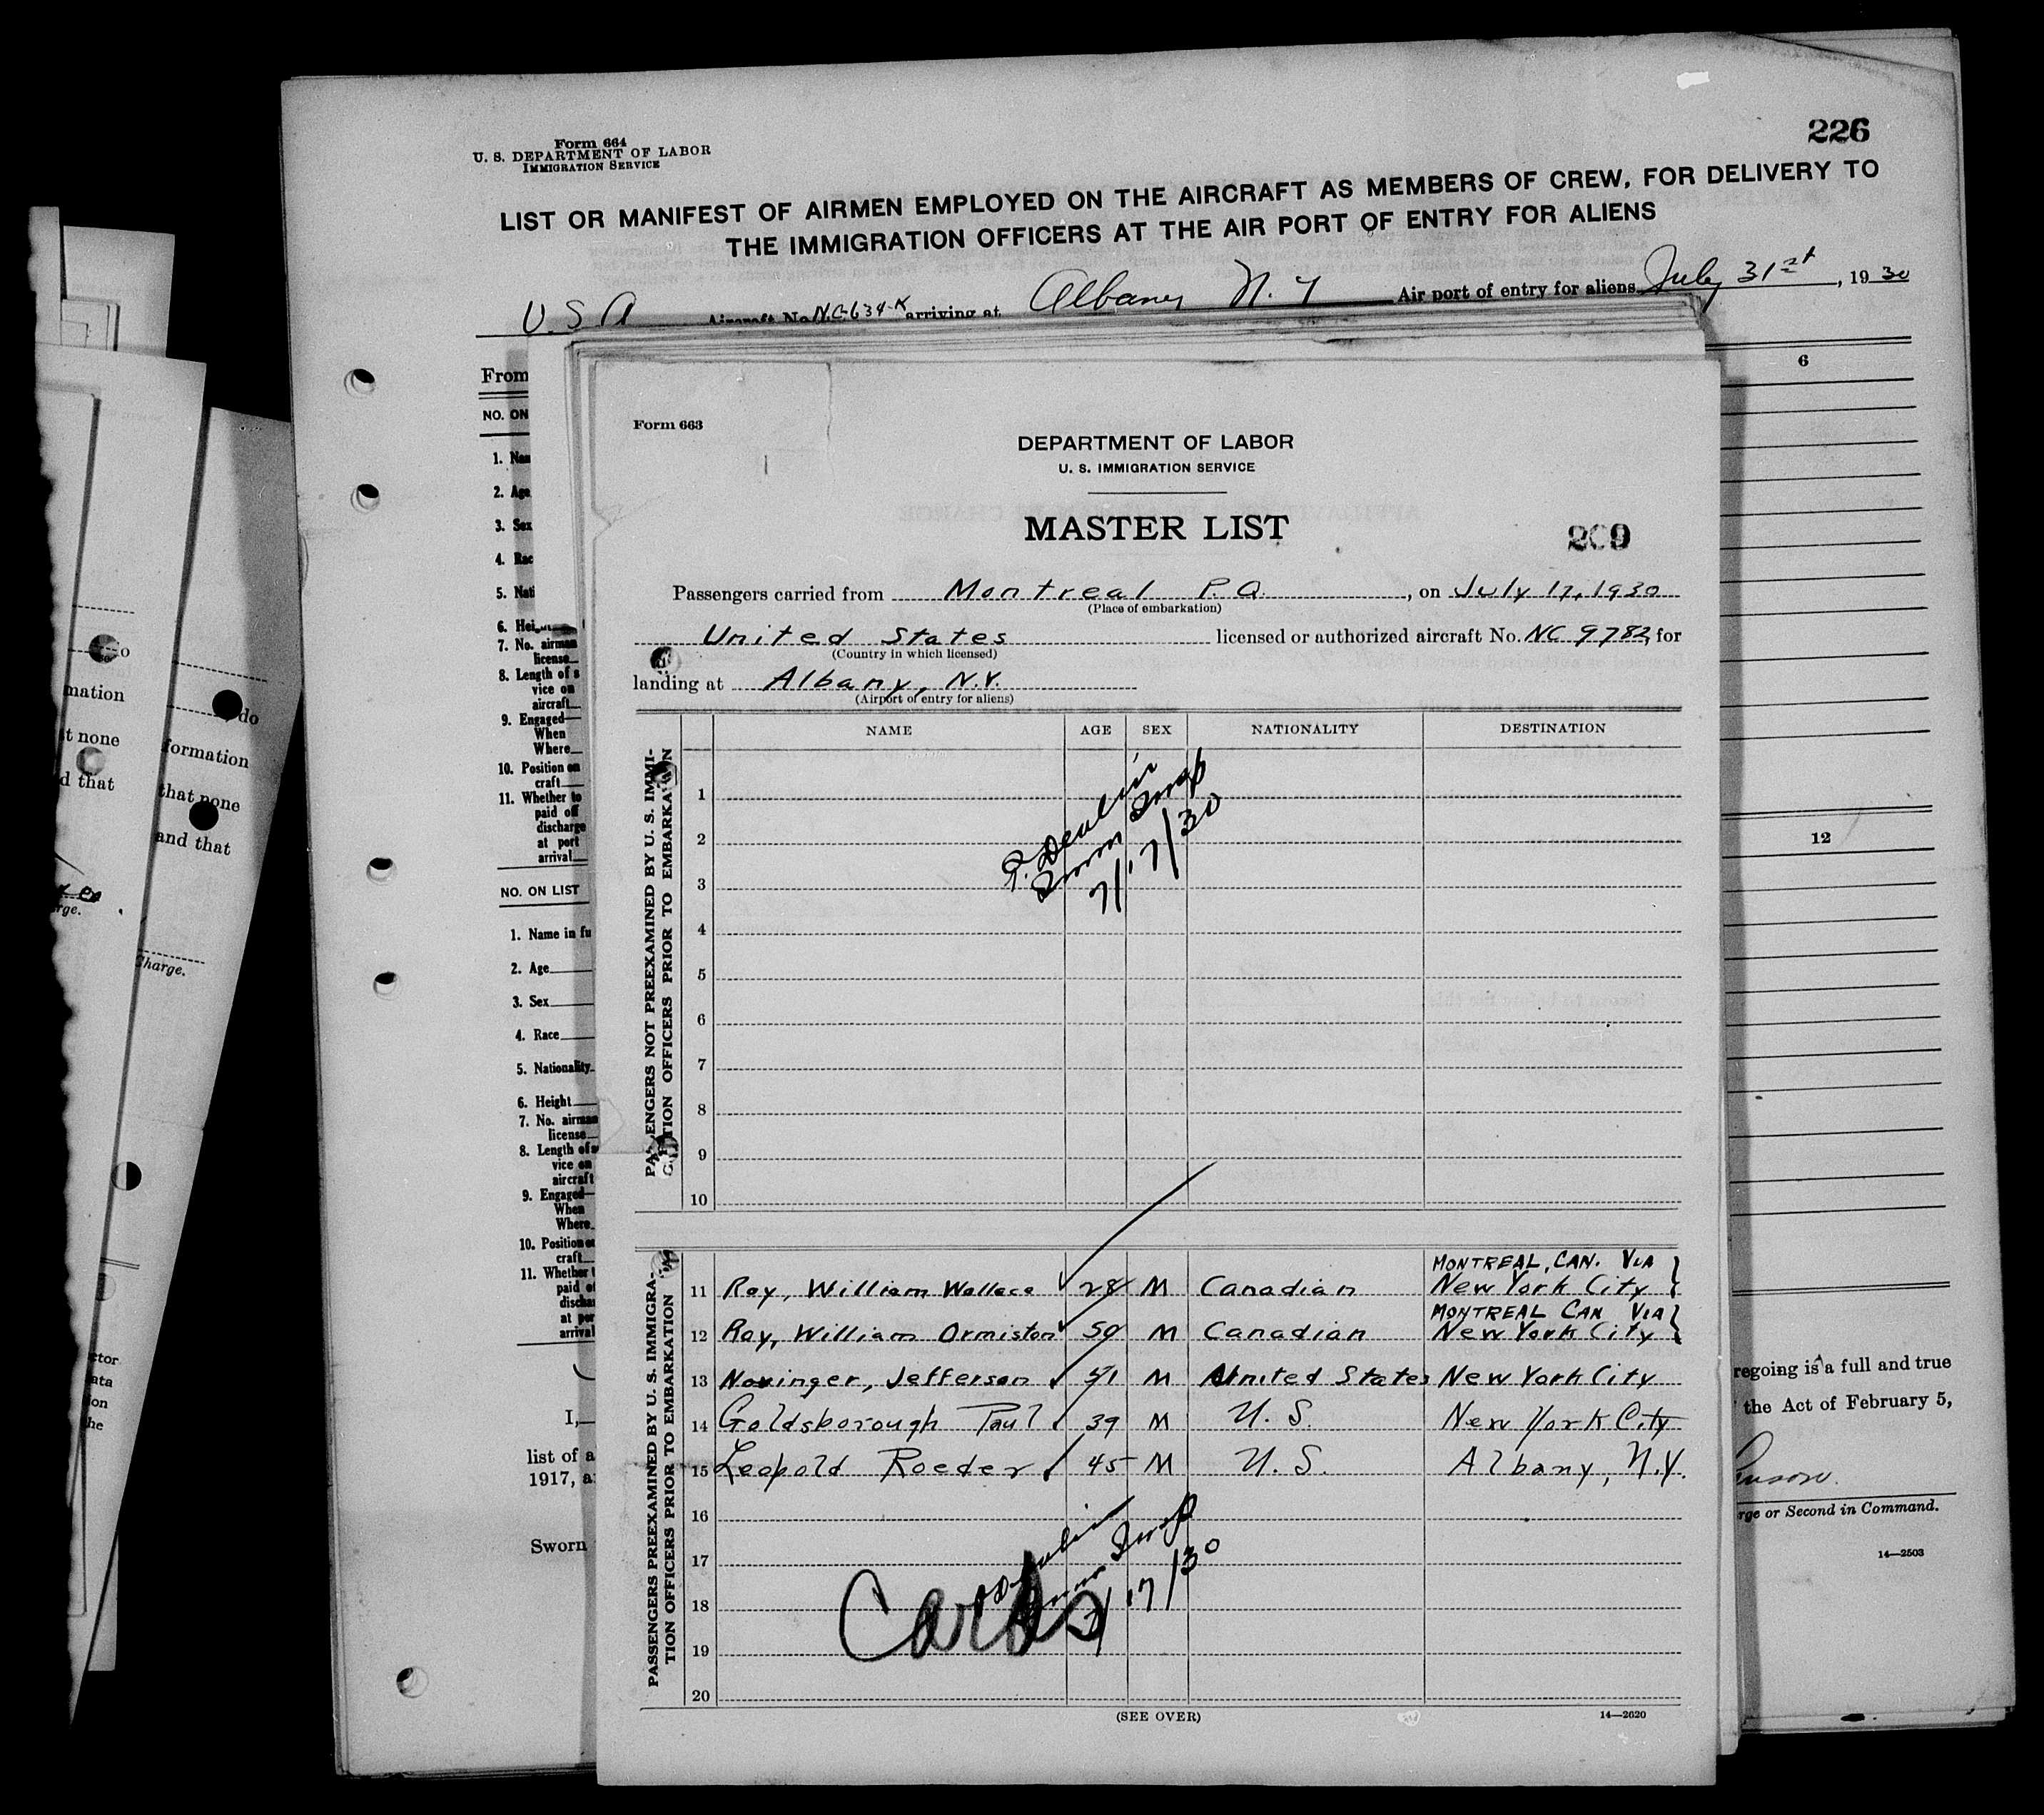 226
Form 664
U. S. DEPARTMENT OF LABOR
IMMIGRATION SERVICE
LIST OR MANIFEST OF AIRMEN EMPLOYED ON THE AIRCRAFT AS MEMBERS OF CREW, FOR DELIVERY TO
THE IMMIGRATION OFFICERS AT THE AIR PORT OF ENTRY FOR ALIENS
U.S.A Aircraft No. NC-634-K arriving at Albany N.Y Air port of entry for aliens July 31st, 1930
From
6
NO. ON
1. Nam
2. Age
3. Sex
4. Rac
5. Nati
6. Hei
7. No. airman
license
8. Length of s
vice on
aircraft
9. Engaged
When
Where
10. Position on
craft
11. Whether to
paid off
discharge
at port
arrival
12
NO. ON LIST
1. Name in fu
2. Age
3. Sex
4. Race
5. Nationality
6. Height
7. No. airman
license
8. Length of
vice on
aircraft
9. Engaged
When
Where
10. Position
craft
11. Whether t
paid o
discha
at por
arrival
I,
regoing is a full and true
list of a
the Act of February 5,
1917, a
Sworn
rge or Second in Command.
14—2503
Form 663
DEPARTMENT OF LABOR
U. S. IMMIGRATION SERVICE
MASTER LIST
209
Passengers carried from Montreal P.Q., on July 17, 1930
(Place of embarkation)
United States licensed or authorized aircraft No. NC 9782, for
(Country in which licensed)
landing at Albany, N.Y.
(Airport of entry for aliens)
NAME AGE SEX NATIONALITY DESTINATION
PASSENGERS NOT PREEXAMINED BY U. S. IMMI-
GRATION OFFICERS PRIOR TO EMBARKATION
1
2
3
Immn Insp
7/17/30
4
5
6
7
8
9
10
PASSENGERS PREEXAMINED BY U. S. IMMIGRA-
TION OFFICERS PRIOR TO EMBARKATION
MONTREAL, CAN. VIA }
11 Roy, William Wallace 28 M Canadian New York City
MONTREAL CAN VIA }
12 Roy, William Ormiston 59 M Canadian New York City
13 Noxinger, Jefferson 51 M United States New York City
14 Goldsborough Paul 39 M U.S. New York City
15 Leopold Roeder 45 M U.S. Albany, N.Y.
16
17
18
19
20
Immn Insp
7/17/30
Cards
(SEE OVER)
14—2620
mation
t none
d that
rge.
do
formation
that none
and that
Charge.
ctor
ata
ion
the